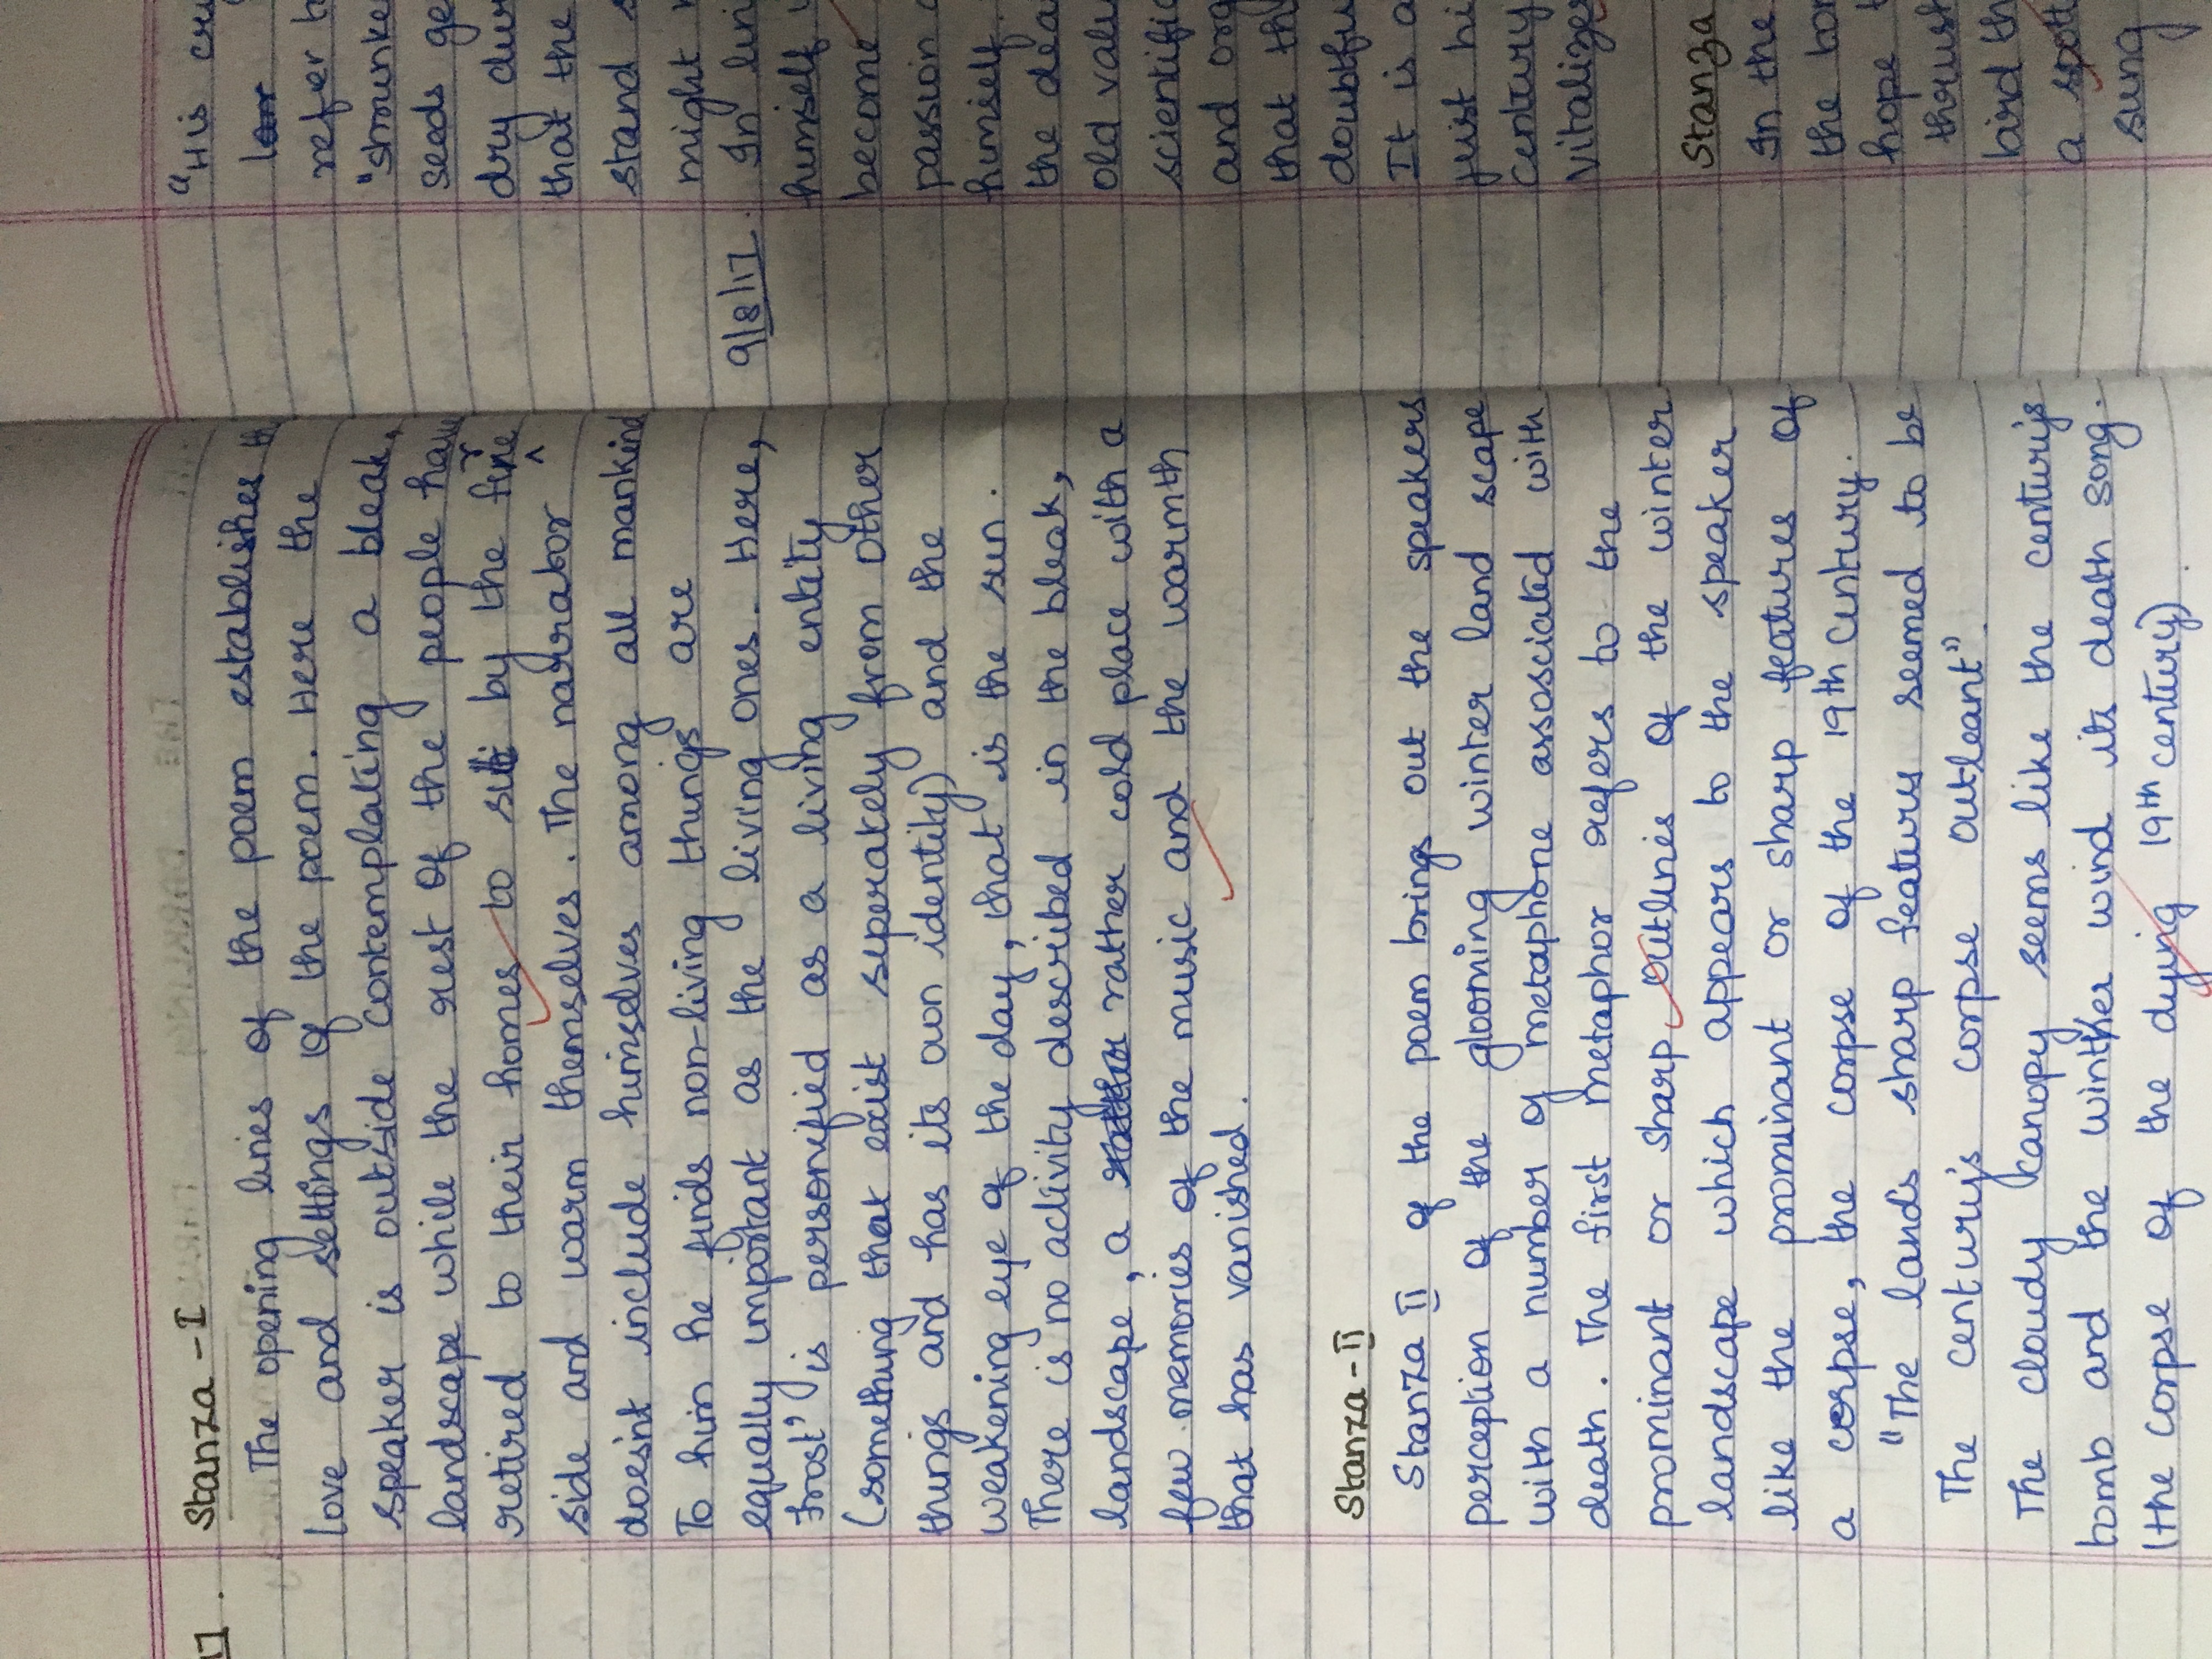 17. Stanza - I
The opening lines of the poem establishes th
love and settings of the poem. Here the
speaker is outside contemplating a bleak,
landscape while the rest of the people have
retired to their homes to sit by the fire
side and warm themselves. The narrator
doesn't include himselves among all mankind
To him he finds non-living things are
equally important as the living ones. Here,
Frost' is personified as a living entity
(something that exist seperately from other
things and has its own identity) and the
weakening eye of the day, that is the sun.
There is no activity described in the bleak,
landscape, a rather cold place with a
few memories of the music and the warmth
that has vanished.
Stanza - II
Stanza II of the poem brings out the speakers
perception of the glooming winter land scape
with a number of metaphone assosciated with
death. The first metaphor refers to the
prominant or sharp outlines of the winter
landscape which appears to the speaker
like the prominant or sharp features of
a corpse, the corpse of the 19th century.
"The land's sharp features seemed to be
The century's corpse outleant".
The cloudy canopy seems like the century's
tomb and the winther wind its death song.
(the corpse of the dying 19th century).
"His cry
refer to
"shrunke
seeds ge
dry dur
that the
stand s
might
9/8/17. In lin
himself
become
passion
himself.
the dea
old valu
scientific
and org
that th
doubtfu
It is a
just hi
century
vitalizes
Stanza
In the
the
hope t
thrust
bird th
a spott
sung